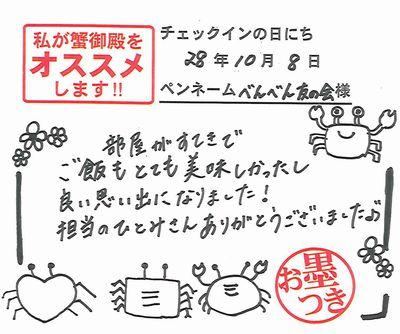 私が蟹御殿を
オススメ
します!!
チェックインの日にち
28年10月8日
ペンネームべんべん友の会様
部屋がすてきで
ご飯もとても美味しかったし
良い思い出になりました!
担当のひとみさんありがとうございました♪
お墨つき